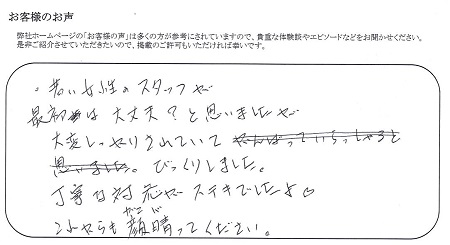 お客様のお声
弊社ホームページの「お客様の声」は多くの方が参考にされていますので、貴重な体験談やエピソードなどをお聞かせください。
是非ご紹介させていただきたいので、掲載のご許可もいただければ幸いです。
・若い女性のスタッフが
最初は大丈夫?と思いましたが
大変しっかりされていて がんばっていらっしゃると
思いました。びっくりしました。
丁寧な対応がステキでしたよ♡
がんば
これからも顔晴ってください。